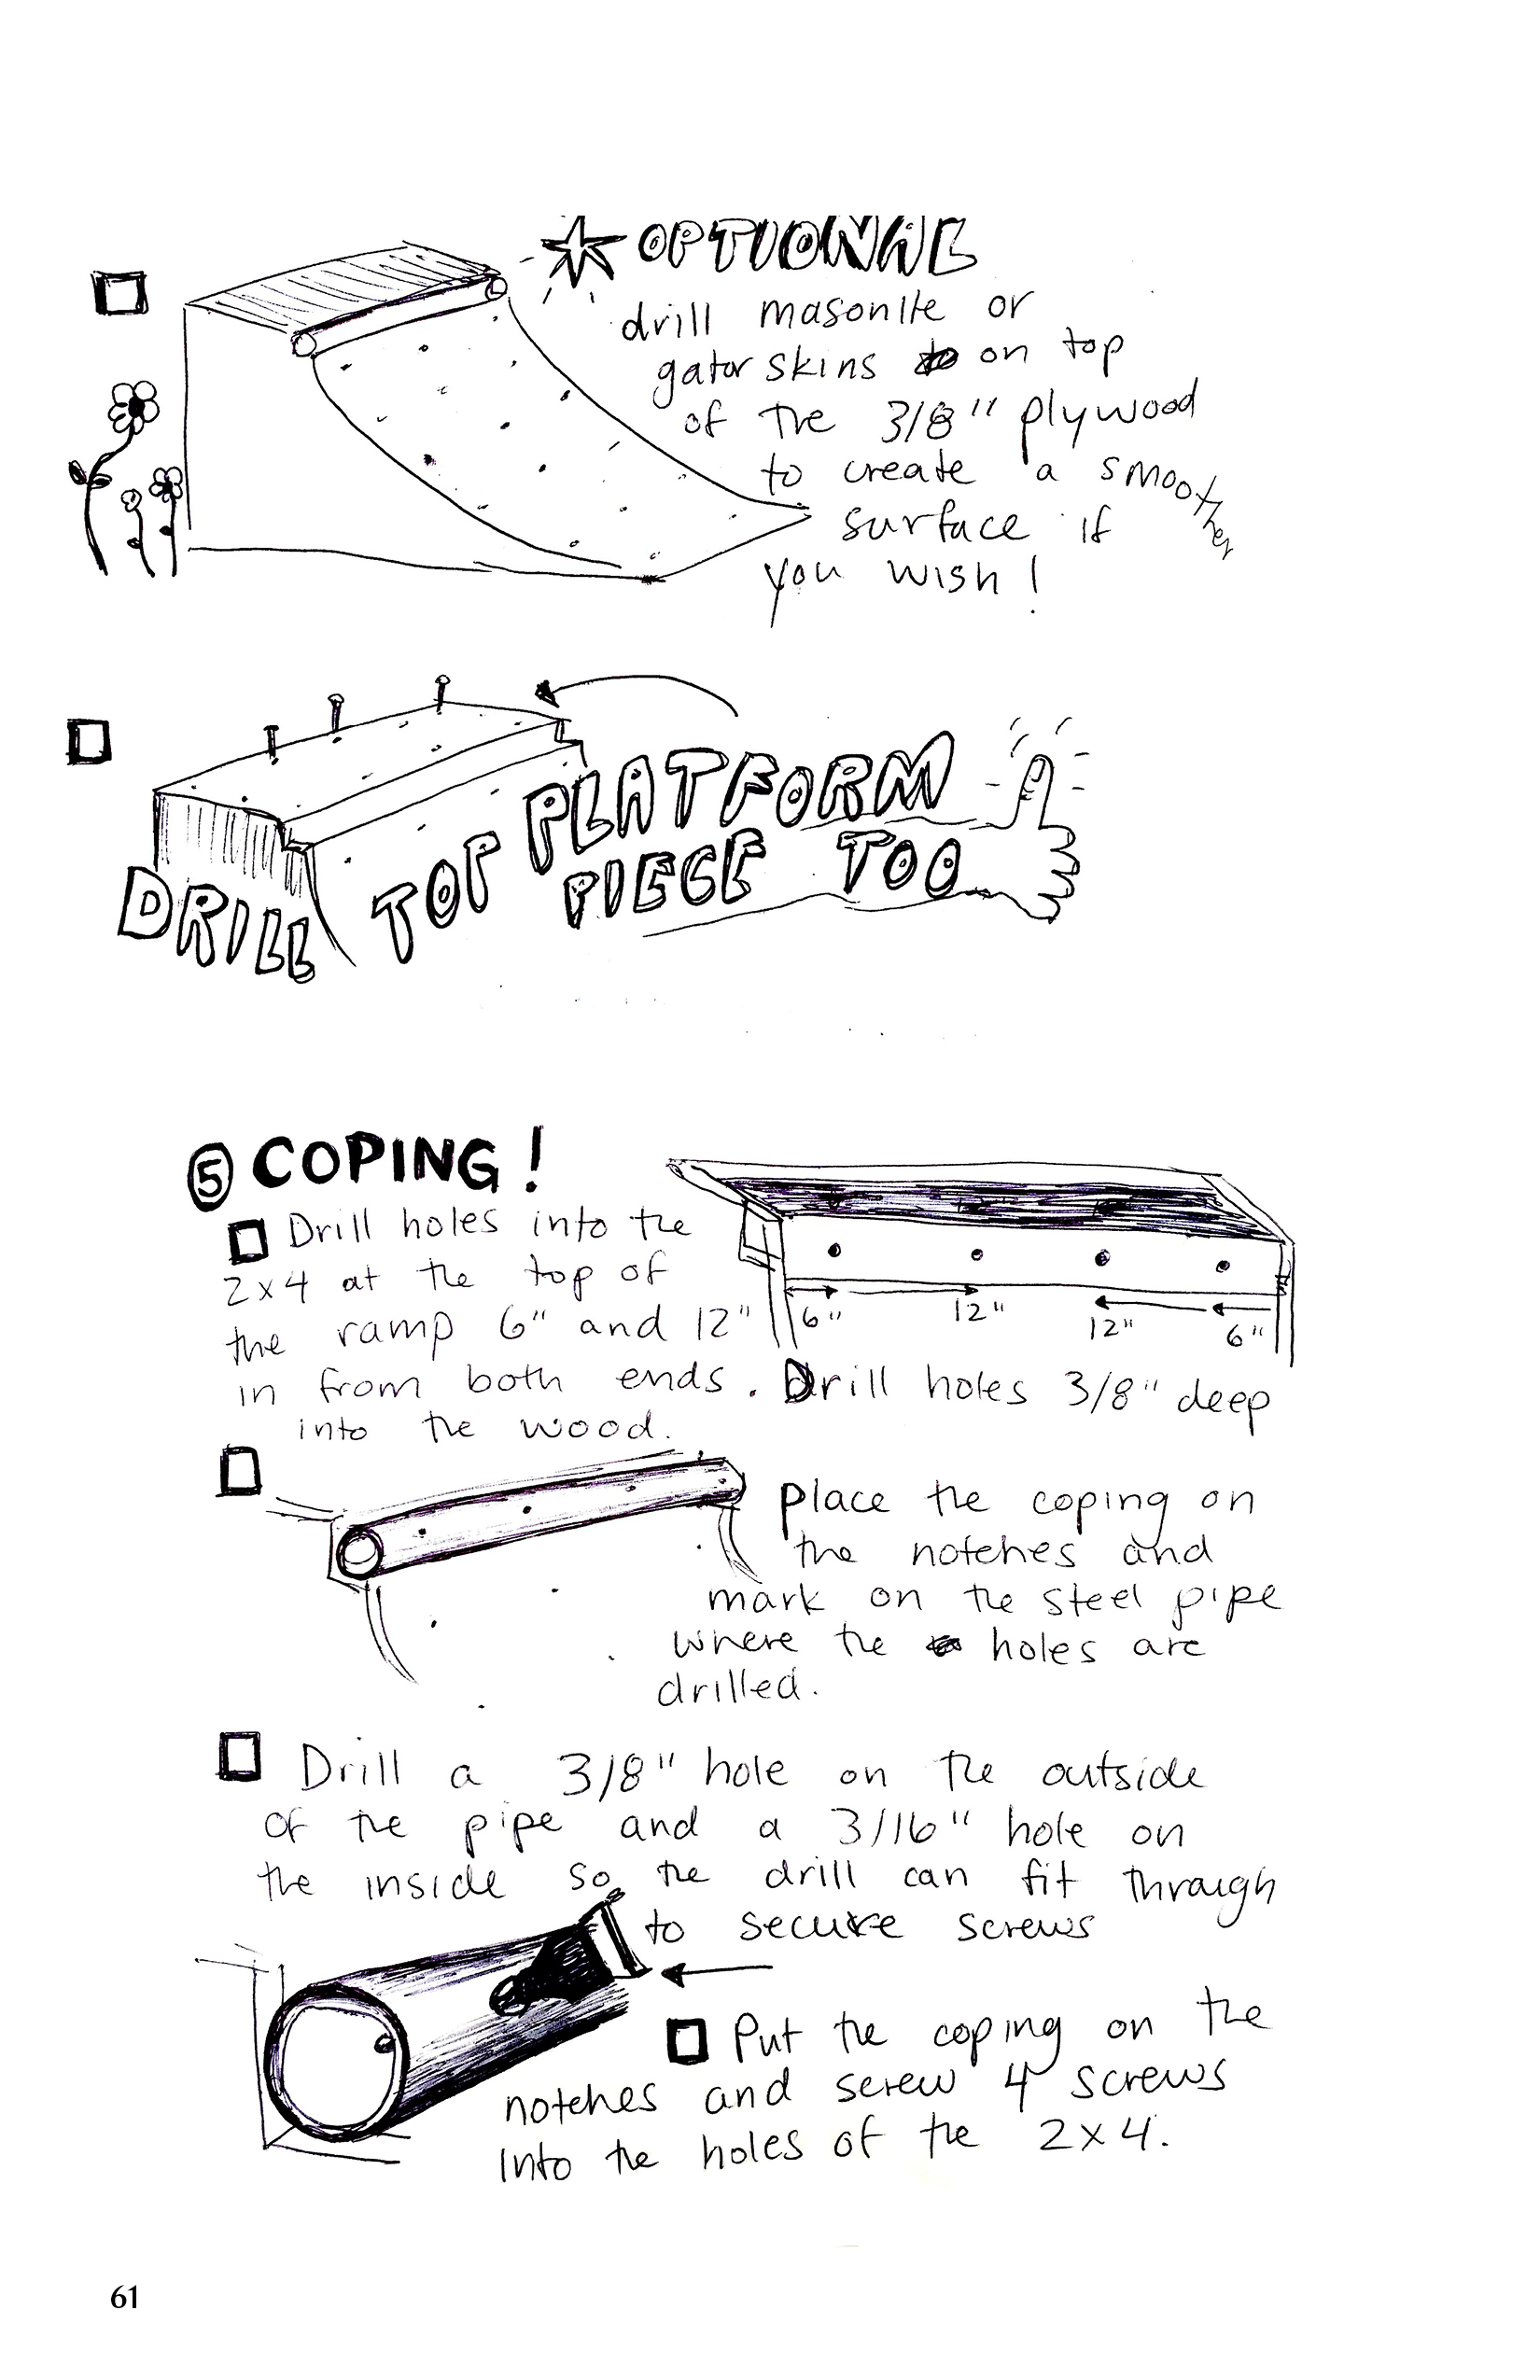 OPTIONAL
drill masonite or
gator skins on top
of the 3/8" plywood
to create a smoother
surface if
you wish!
DRILL TOP PLATFORM
PIECE TOO
5 COPING!
Drill holes into the
2x4 at the top of
the ramp 6" and 12"
in from both ends. Drill holes 3/8" deep
into the wood.
6" 12" 12" 6"
Place the coping on
the notches and
mark on the steel pipe
where the holes are
drilled.
Drill a 3/8" hole on the outside
of the pipe and a 3/16" hole on
the inside so the drill can fit through
to secure screws
Put the coping on the
notches and screw 4 screws
into the holes of the 2x4.
61